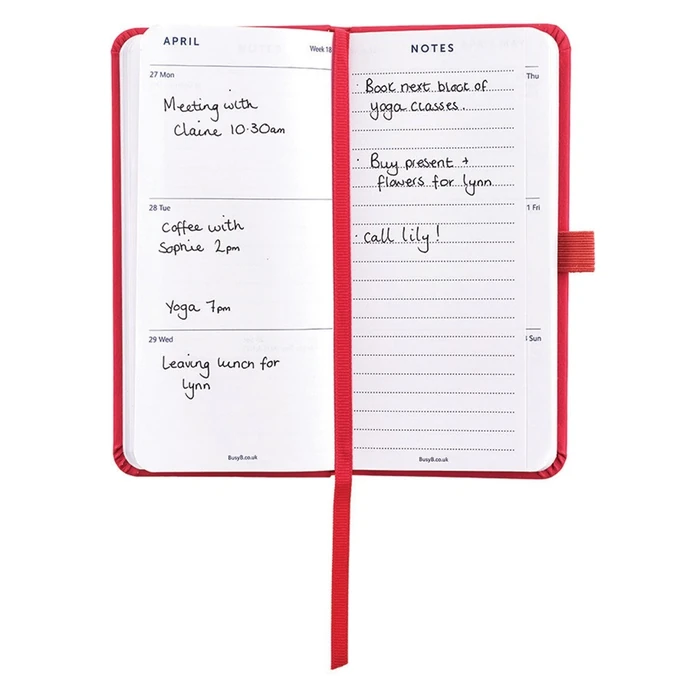 APRIL
Week 18
27 Mon
Meeting with
Claire 10.30am
28 Tue
Coffee with
Sophie 2pm
Yoga 7pm
29 Wed
Leaving lunch for
Lynn
BusyB.co.uk
NOTES
· Book next block of
yoga classes.
· Buy present +
flowers for Lynn
· call lily!
BusyB.co.uk
Thu
1 Fri
3 Sun